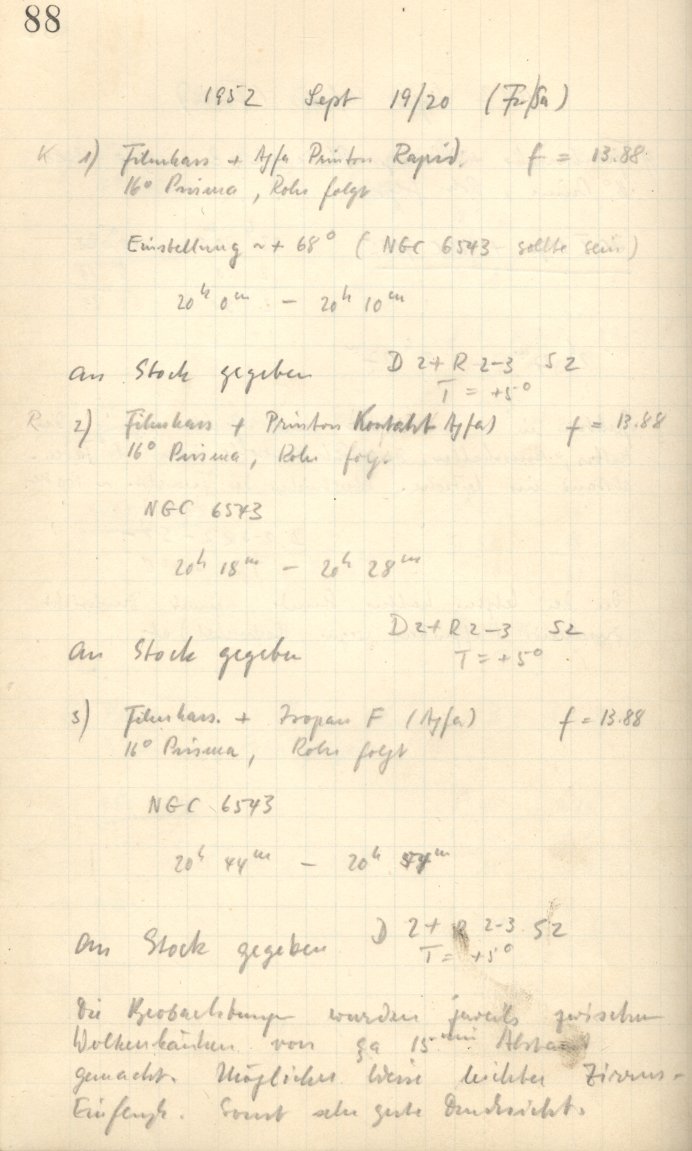 88
1952 Sept 19/20 (Fr/Sa)
K 1) Filmkass + Agfa Printon Rapid. f = 13.88
16° Prisma, Rohr folgt
Einstellung ~ + 68° (NGC 6543 sollte sein)
20h 0m - 20h 10m
an Stock gegeben D 2+ R 2-3 S2
T = +5°
R 2) Filmkass + Printon Kontakt Agfa) f = 13.88
16° Prisma, Rohr folgt
NGC 6543
20h 18m - 20h 28m
D 2+ R 2-3 S2
an Stock gegeben T = +5°
3) Filmkass. + Isopan F (Agfa) f = 13.88
16° Prisma, Rohr folgt
NGC 6543
20h 44m - 20h 54m
an Stock gegeben D 2+ R 2-3 S2
T = +5°
Die Beobachtungen wurden jeweils zwischen
Wolkenbänken von 15min Abstand
gemacht. Möglicher Weise leichter Zirrus-
Sonst sehr gute Durchsicht.